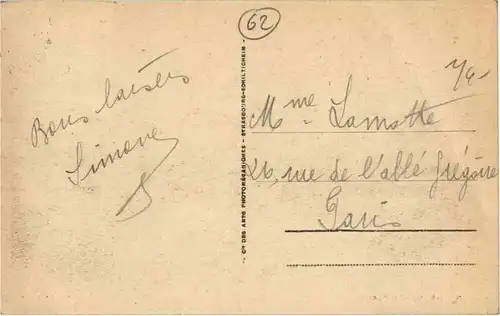 62
1/4-
Bons baisers
Simone
Mme Lamotte
26, rue de l'abbé Grégoire
Paris
- Cie DES ARTS PHOTOMÉCANIQUES - STRASBOURG-SCHILTIGHEIM -